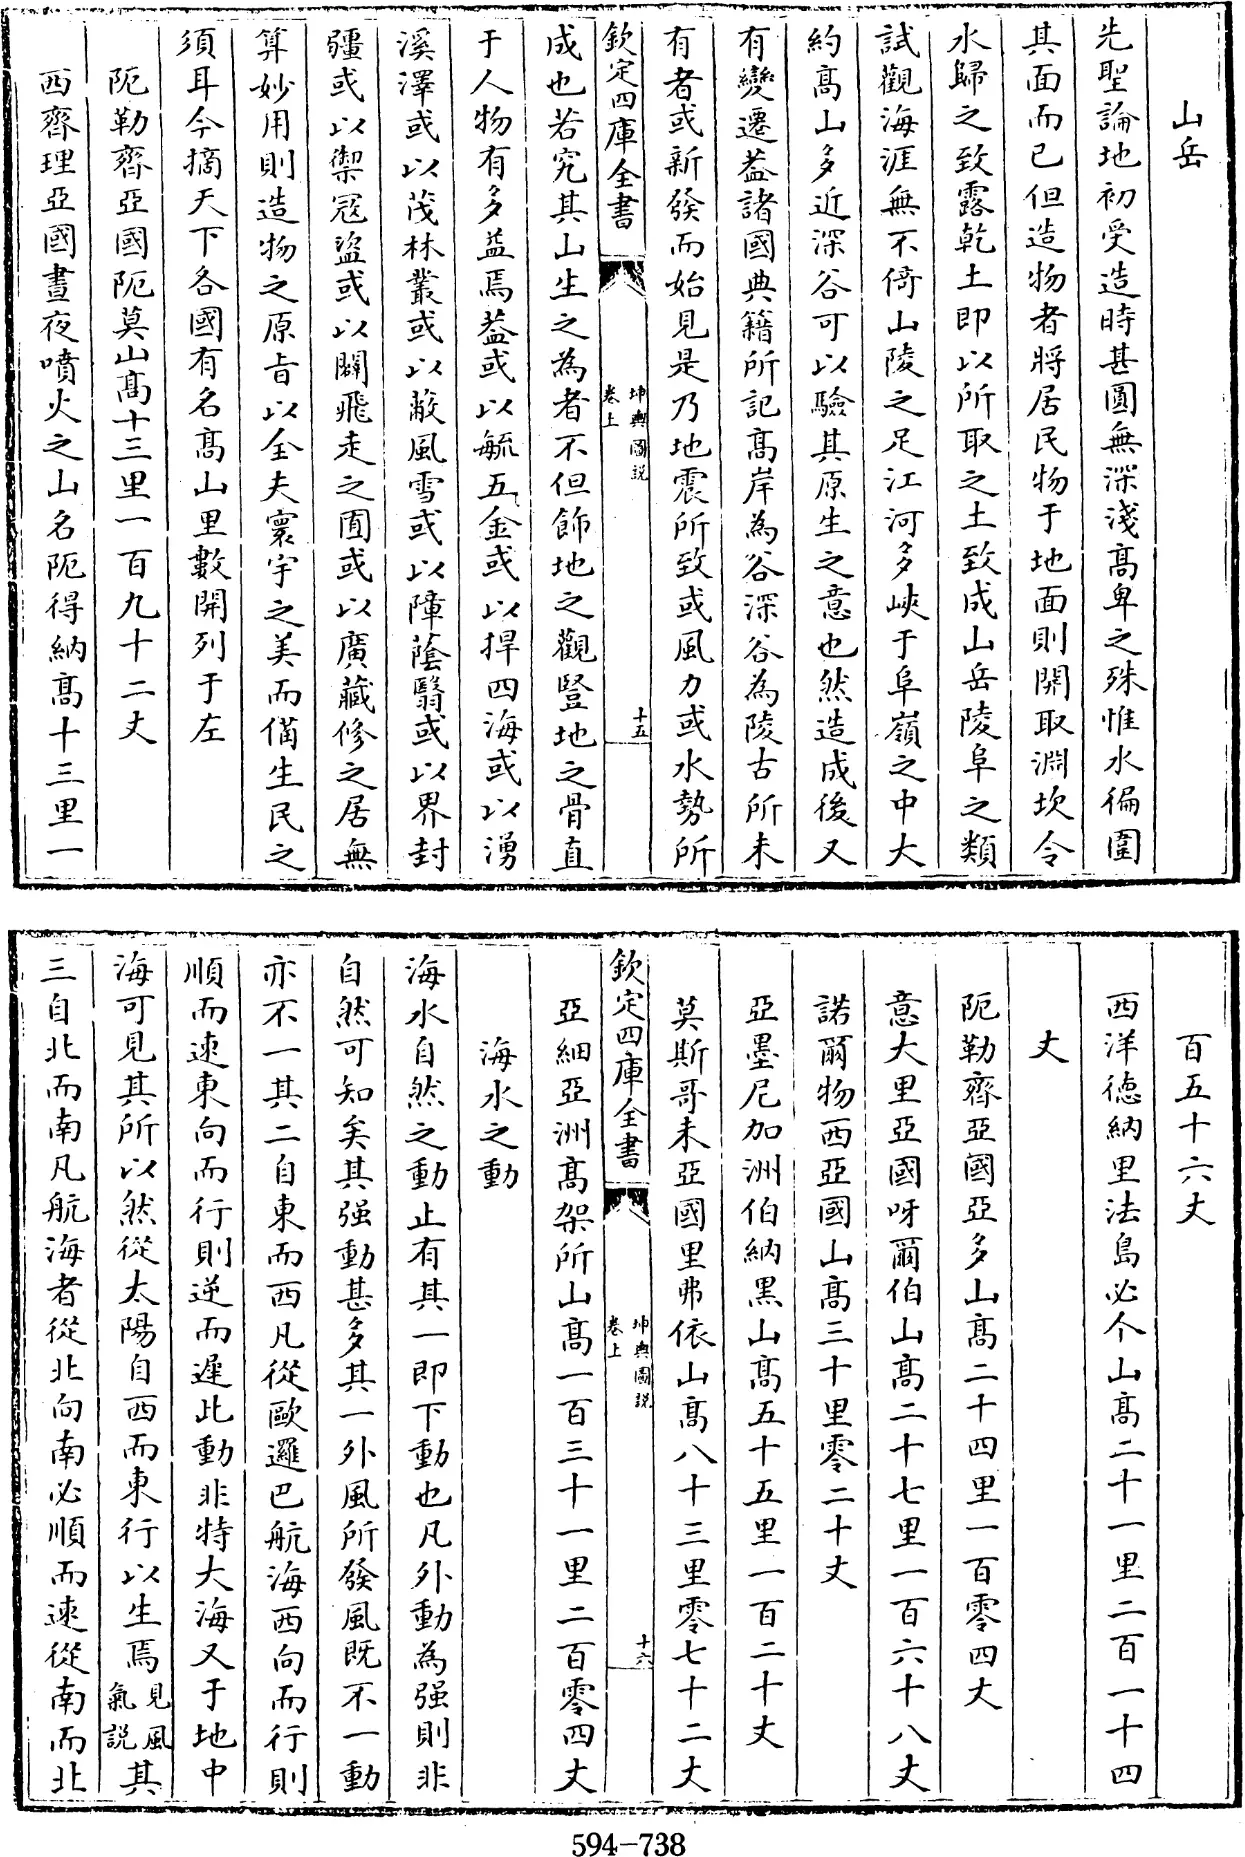 山岳
先聖論地初受造時甚圓無深淺髙卑之殊惟水徧圍
其面而已但造物者將居民物于地面則開取淵坎令
水歸之致露乾土即以所取之土致成山岳陵阜之類
試觀海涯無不倚山陵之足江河多峽于阜嶺之中大
約髙山多近深谷可以驗其原生之意也然造成後又
有變遷葢諸國典籍所記髙岸為谷深谷為陵古所未
有者或新發而始見是乃地震所致或風力或水勢所
欽定四庫全書
坤輿圖說
卷上
十五
成也若究其山生之為者不但飾地之觀豎地之骨直
于人物有多益焉葢或以毓五金或以捍四海或以湧
溪澤或以茂林叢或以蔽風雪或以障蔭翳或以界封
疆或以禦冦盜或以闢飛走之囿或以廣藏修之居無
算妙用則造物之原旨以全夫寰宇之美而僃生民之
須耳今摘天下各國有名髙山里數開列于左
阨勒齊亞國阨莫山髙十三里一百九十二丈
西齊理亞國晝夜噴火之山名阨得納髙十三里一
百五十六丈
西洋德納里法島必个山髙二十一里二百一十四
丈
阨勒齊亞國亞多山髙二十四里一百零四丈
意大里亞國呀爾伯山髙二十七里一百六十八丈
諾爾物西亞國山髙三十里零二十丈
亞墨尼加洲伯納黒山髙五十五里一百二十丈
莫斯哥未亞國里弗依山髙八十三里零七十二丈
欽定四庫全書
坤輿圖說
卷上
十六
亞細亞洲髙架所山髙一百三十一里二百零四丈
海水之動
海水自然之動止有其一即下動也凡外動為强則非
自然可知矣其强動甚多其一外風所發風既不一動
亦不一其二自東而西凡從歐邏巴航海西向而行則
順而速東向而行則逆而遲此動非特大海又于地中
海可見其所以然從太陽自西而東行以生焉見風氣説其
三自北而南凡航海者從北向南必順而速從南而北
594-738